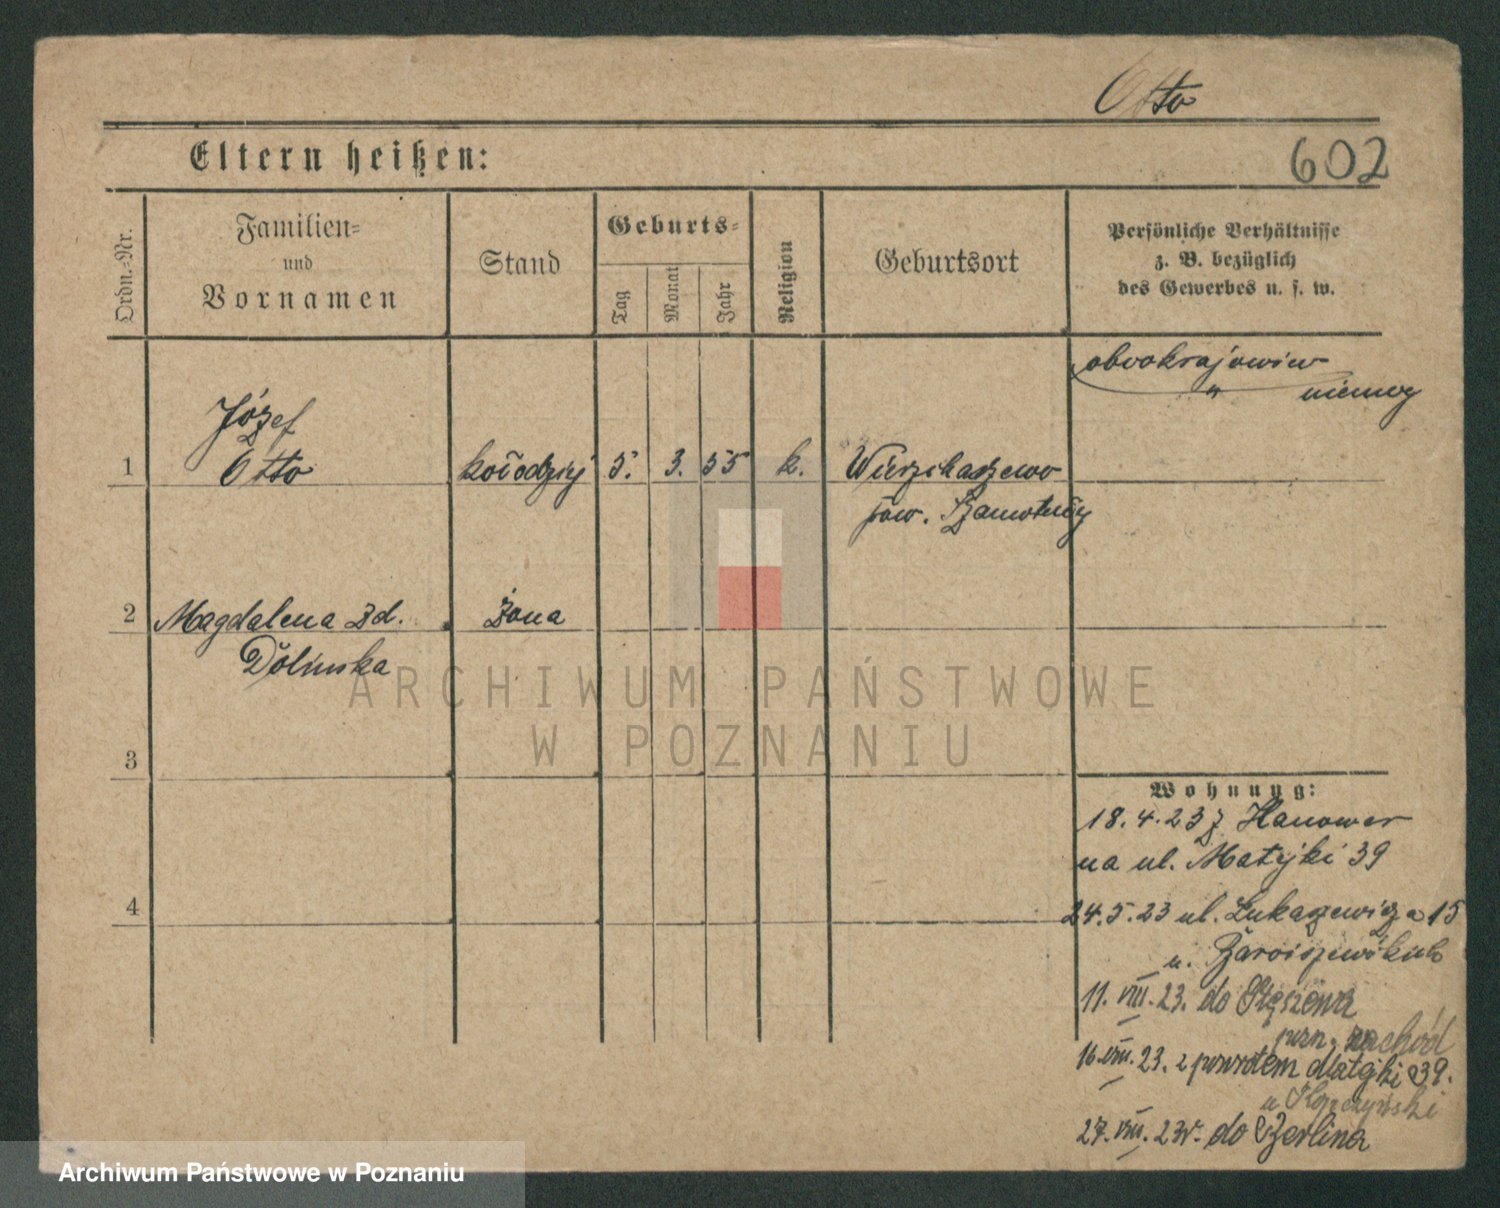 Otto
Eltern heißen:
602
Ordn.-Nr.
Familien-
und
Vornamen
Stand
Geburts-
Tag
Monat
Jahr
Religion
Geburtsort
Persönliche Verhältnisse
z. B. bezüglich
des Gewerbes u. s. w.
obcokrajowiec
" niemcy
Józef
1 Otto kołodziej 5. 3. 55 k.
pow. Szamotuły
2 Magdalena zd. żona
Dolinska
3
4
Wohnung:
18.4.23 z Hanower
na ul. Matejki 39
24.5.23 ul. Lukaszewicza 15
u.
11. VIII. 23. do Stęszewa
pozn. zachód
16. VIII. 23. z powrotem Matejki 39.
u
27. VIII. 23r. do Berlina
ARCHIWUM PAŃSTWOWE
W POZNANIU
Archiwum Państwowe w Poznaniu